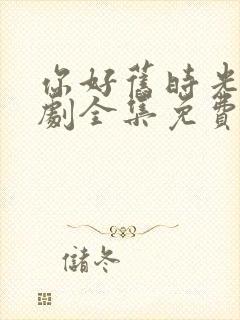 你好舊時光
劇全集免費
儲冬